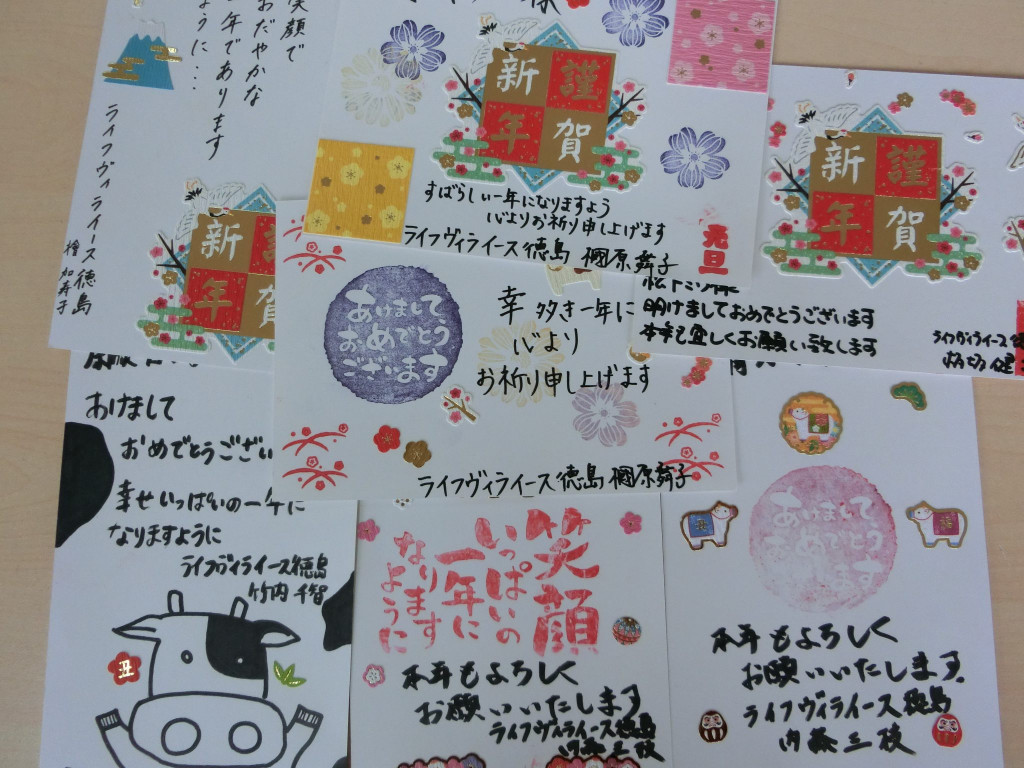 笑顔で
おだやかな
年であります
ように・・・
ライフヴィライース徳島
謹賀
新年
様
謹賀
新年
すばらしい一年になりますよう
心よりお祈り申し上げます
ライフヴィライース徳島
元旦
謹賀
新年
明けましておめでとうございます
本年も宜しくお願い致します
ライフヴィライース
あけまして
おめでとう
ございます
幸多き一年に
心より
お祈り申し上げます
ライフヴィライース徳島
あけまして
おめでとうござい
幸せいっぱいの一年に
なりますように
ライフヴィライース徳島
竹内 千智
丑
笑顔
いっぱいの
一年に
なります
ように
本年もよろしく
お願いいたします
ライフヴィライース徳島
内藤三枝
あけまして
おめでとう
ございます
丑
本年もよろしく
お願いいたします。
ライフヴィライース徳島
内藤三枝